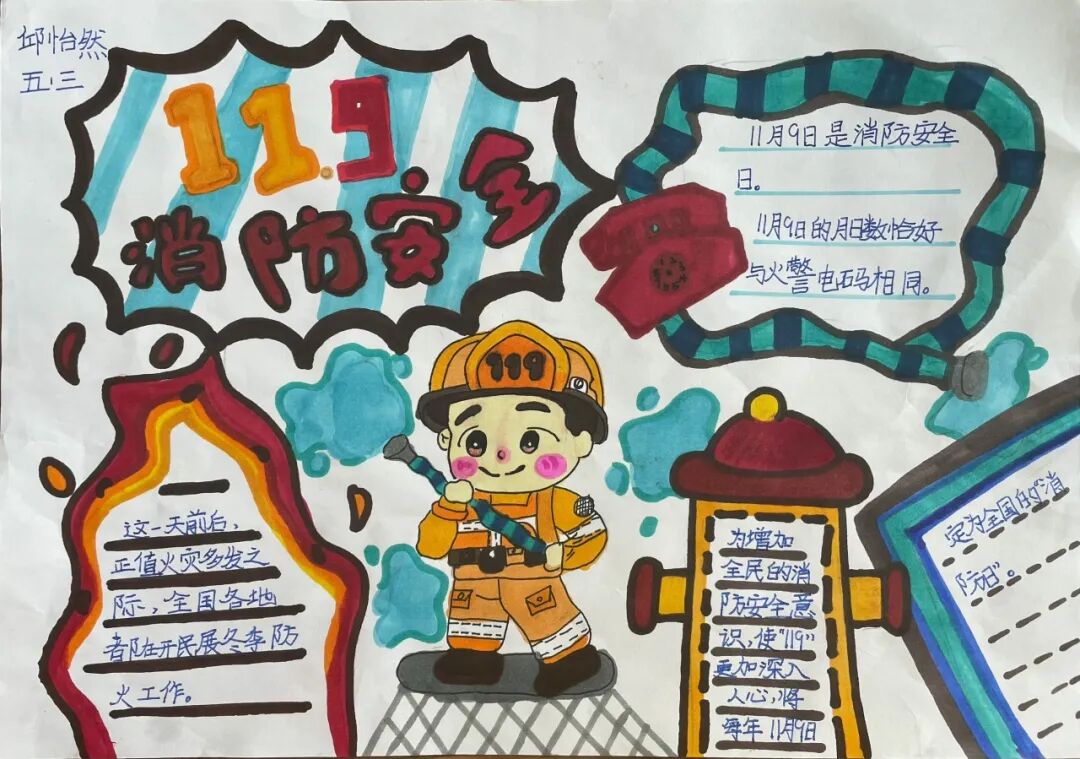 邱怡然
五.三
11.9
消防安全
11月9日是消防安全
日。
11月9日的月日数恰好
与火警电码相同。
119
这一天前后,
正值火灾多发之
际,全国各地
都在开民展冬季防
火工作。
为增加
全民的消
防安全意
识,使"119"
更加深入
人心,将
每年11月9日
定为全国的"消
防日"。